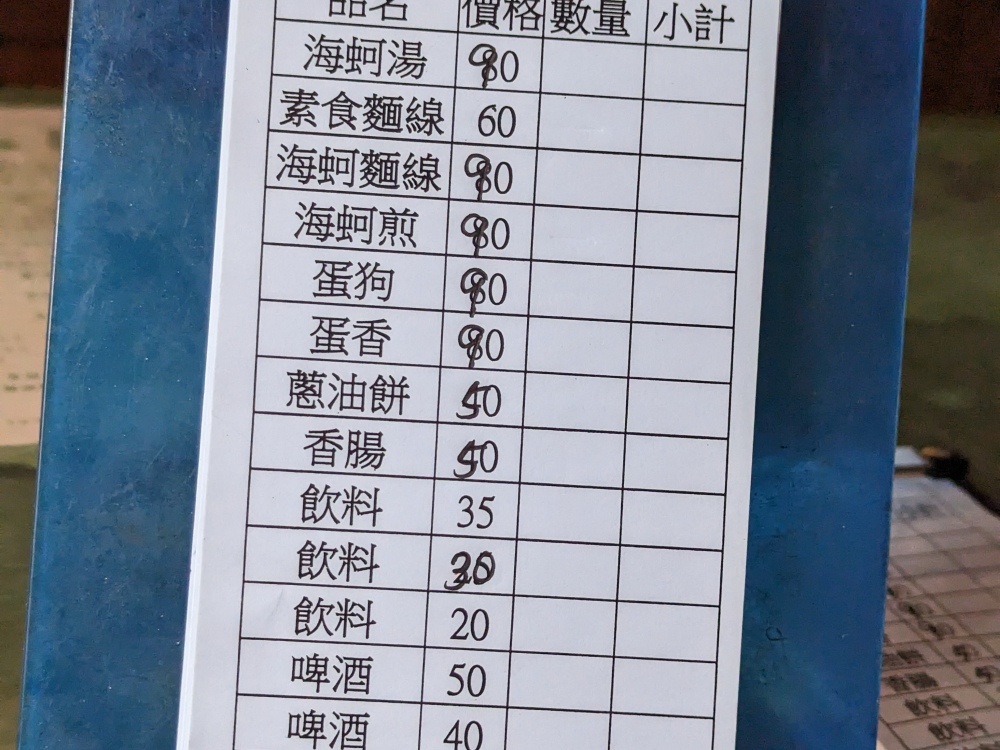 品名 價格 數量 小計
海蚵湯 90
素食麵線 60
海蚵麵線 90
海蚵煎 90
蛋狗 90
蛋香 90
蔥油餅 50
香腸 50
飲料 35
飲料 30
飲料 20
啤酒 50
啤酒 40
香腸
飲料
飲料